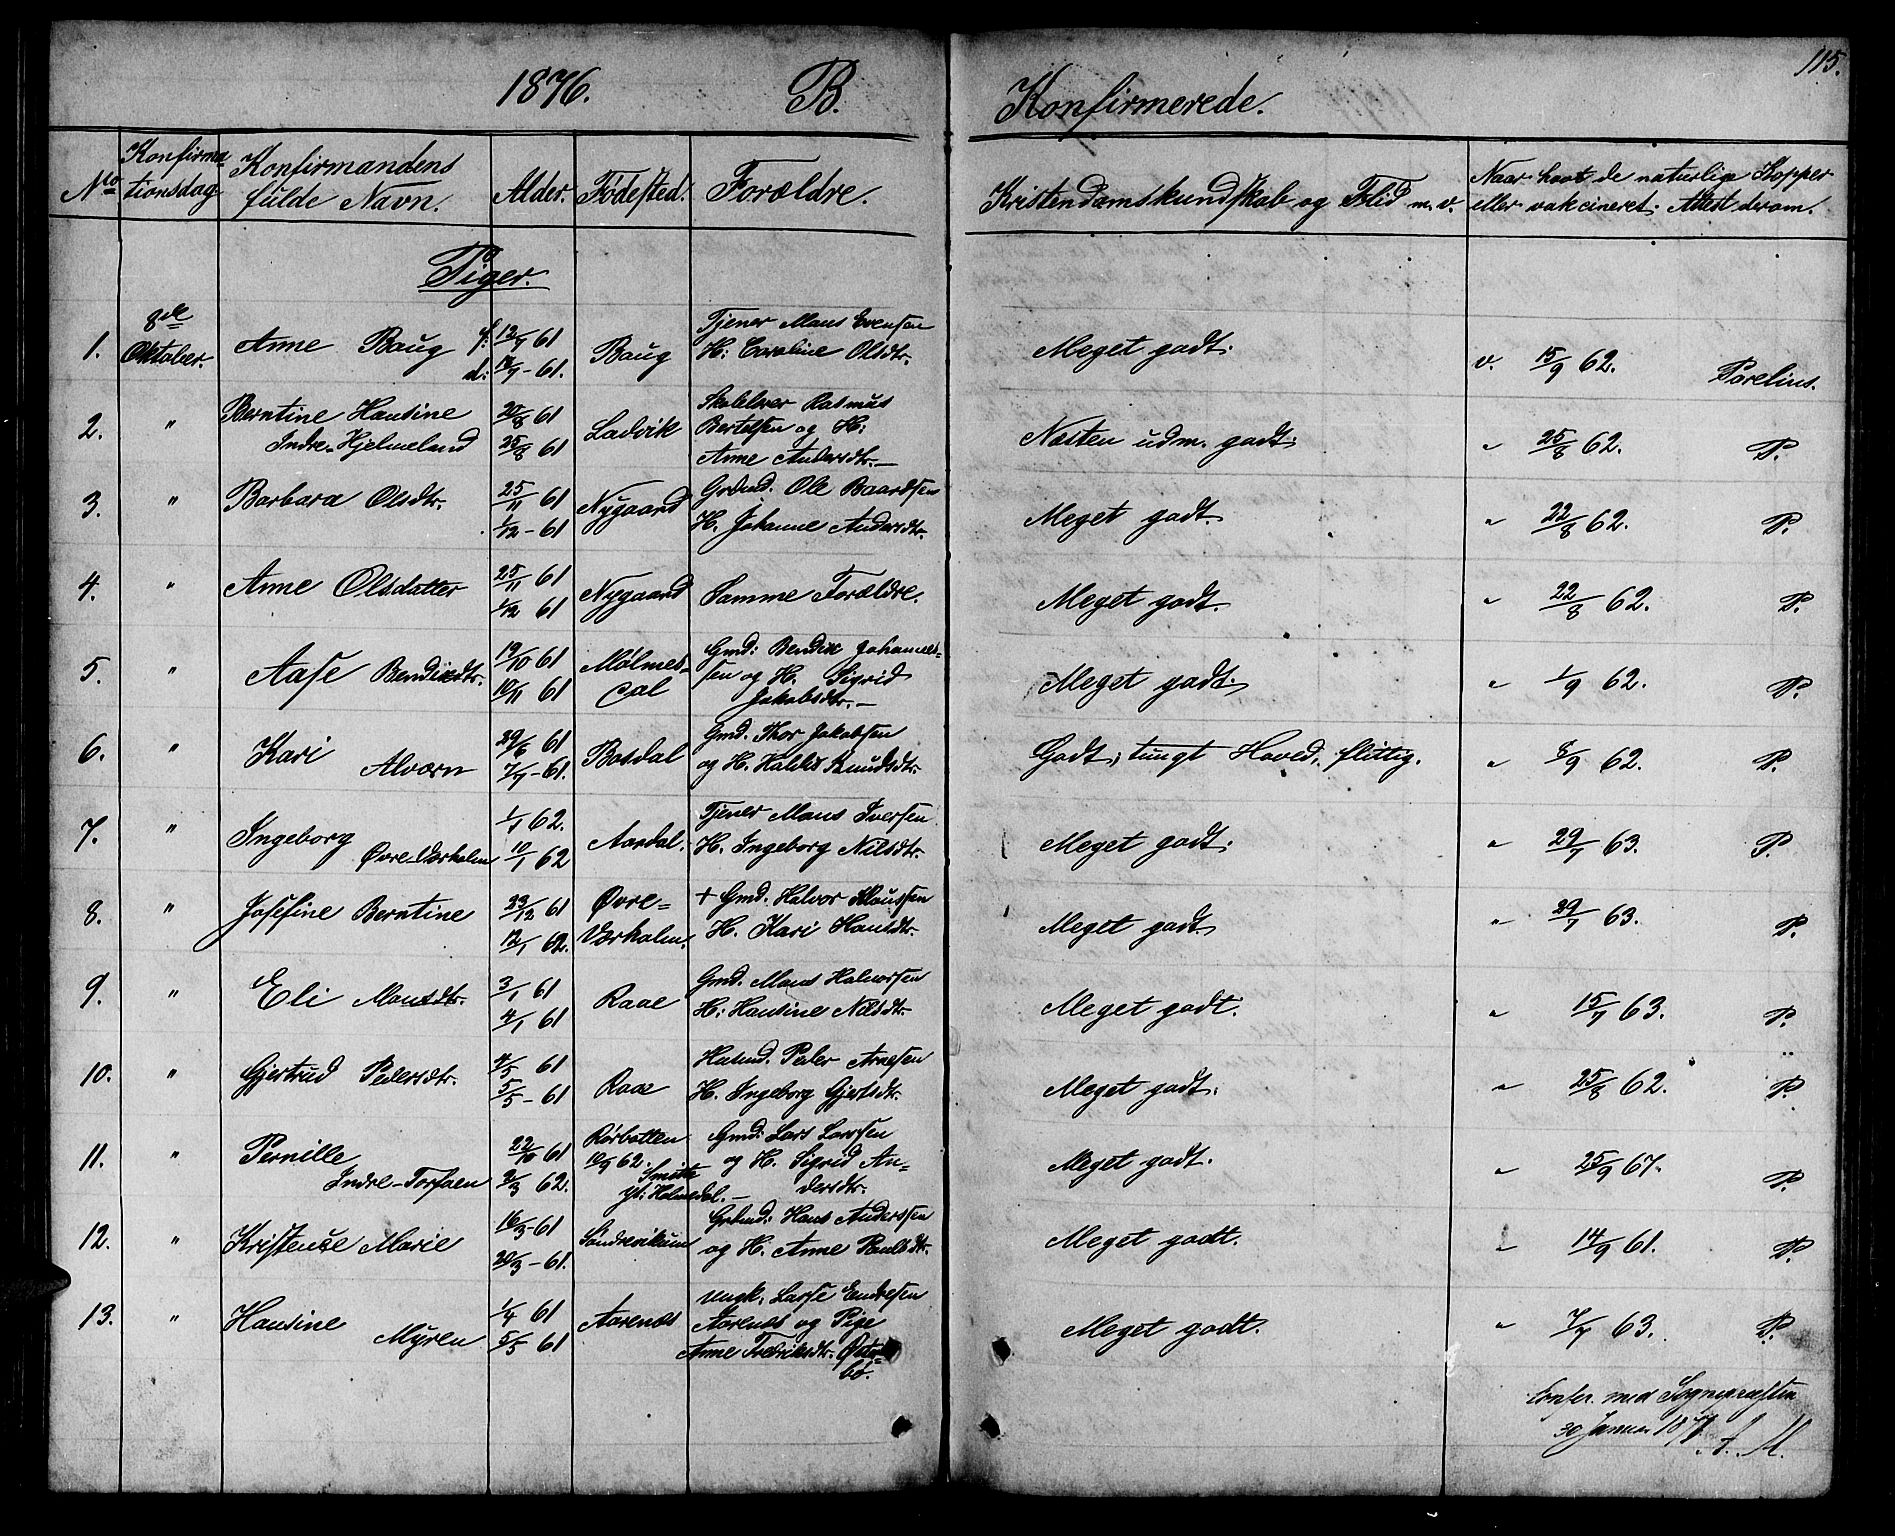 115.
1876. B. Konfirmerede.
No Konfirmationsdag. Konfirmandens fulde Navn. Alder. Fødested. Forældre. Kristendomskundskab og Flid m. v. Naar havt de naturlige Kopper eller vakcineret; Attest derom.
Piger.
1. Oktober. Anne Baug f: 12/7 61 Baug Tjener Mons Evensen Meget godt. v. 15/9 62.
d: 61. H: Caroline Olsdtr.
2. " Berntine Hansine 20/8 61 Ladvik Rasmus Næsten udm. godt. " 25/8 62. P.
Indre-Hjelmeland 25/8 61 Bertelsen og H:
Anne Andersdtr. —
3. " Barbara Olsdtr. 25/11 61 Nygaard Ole Baardsen Meget godt. " 22/8 62. P.
1/12 - 61 H. Johanne Andersdtr.
4. " Anne Olsdatter 25/11 61 Nygaard Samme Forældre. Meget godt. " 22/8 62. P.
1/12 61
5. " Aase Bendixdtr. 19/10 61 Mølmesdal Gmd: Bendix Johannes- Meget godt. " 1/9 62. P.
10/11 61 sen og H. Sigrid
Jakobsdtr. —
6. " Kari 29/6 61 Bosdal Gmd. Thor Jakobsen Godt; tungt Hoved, flittig. " 8/9 62. P.
Alværn 7/7 - 61. og H. Knudsdtr.
7. " Ingeborg 1/1 62. Aardal. Tjener Mons Iversen Meget godt. " 29/7 63. P.
Øvre-Værholm 10/1 62 H. Ingeborg Nilsdtr.
8. " Josefine Berntine 23/12 61 Øvre- + Gmd. Halvor Meget godt. " 29/7 63. P.
12/1 62. Værholm. H. Kari Hansdtr.
9. " Eli Monsdtr. 3/1 61 Raae Gmd. Mons Halvorsen Meget godt. " 15/7 63. P.
4/1 61 H: Hansine Nilsdtr.
10. " Gjertrud Pedersdtr. 4/5 61 Raae Husmd. Peder Arnesen Meget godt. " 25/8 62. P.
5/5 - 61 H. Ingeborg Gjertsdtr.
11. " Pernille 22/10 61 Rørbotten Gmd: Lars Larssen Meget godt. " 25/9 67. P.
Indre-Torsaen 2/3 62. 10/9 62. og H. Sigrid An-
Holmedal. — dersdtr.
12. " Kristense Marie 16/3 - 61 Hans Anderssen Meget godt. " 14/9 61. P.
20/3 - 61. og H. Anne Paulsdtr.
13. " Hansine 1/4 61 Aarenæs ungk. Lasse Endresen Meget godt. " 7/7 63. P.
Myren 5/5 61 Aarenæs og Pige
Anne Fredriksdtr. Østre-
bø.
Confer. med Sognepræsten
30 Januar A. M.